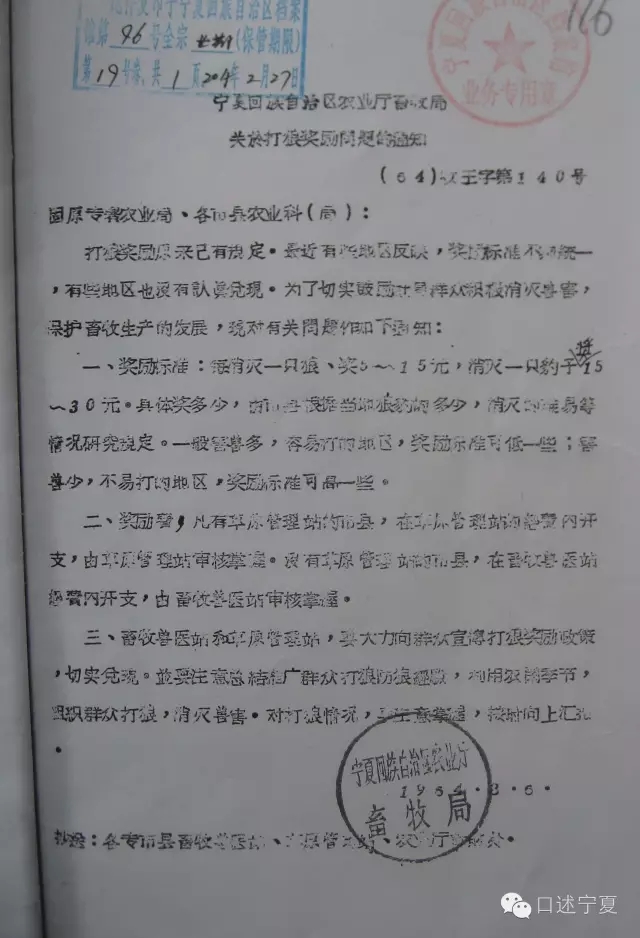 宁夏回族自治区档案
馆第96号全宗 长期(保管期限)
第19号卷,共1页2014年2月27日
116
业务专用章
宁夏回族自治区农业厅畜牧局
关於打狼奖励问题的通知
(64)牧王字第140号
固原专署农业局、各市县农业科(局):
打狼奖励原来已有规定。最近有些地区反映,奖励标准不统一
,有些地区也没有認真兑现。为了切实鼓励群众积极消灭兽害,
保护畜牧生产的发展,现对有关問題作如下通知:
一、奖励标准:每消灭一只狼、奖5~15元,消灭一只豹子奖15
~30元。具体奖多少,由市县根据当地狼豹的多少,消灭的难易等
情况研究规定。一般害兽多,容易打的地区,奖励标准可低一些;害
兽少,不易打的地区,奖励标准可高一些。
二、奖励费,凡有草原管理站的市县,在草原管理站的经費内开
支,由草原管理站审核掌握。没有草原管理站的市县,在畜牧兽医站
經費内开支,由畜牧兽医站审核掌握。
三、畜牧兽医站和草原管理站,要大力向群众宣傳打狼奖励政策
,切实兑现。並要注意总結推广群众打狼防狼經驗,利用农閑季节,
組织群众打狼,消灭兽害。对打狼情况,要注意掌握,按时向上汇报
。
宁夏回族自治区农业厅
畜牧局
1964.3.6.
抄送:各专市县畜牧兽医站、草原管理站、农业厅
口述宁夏